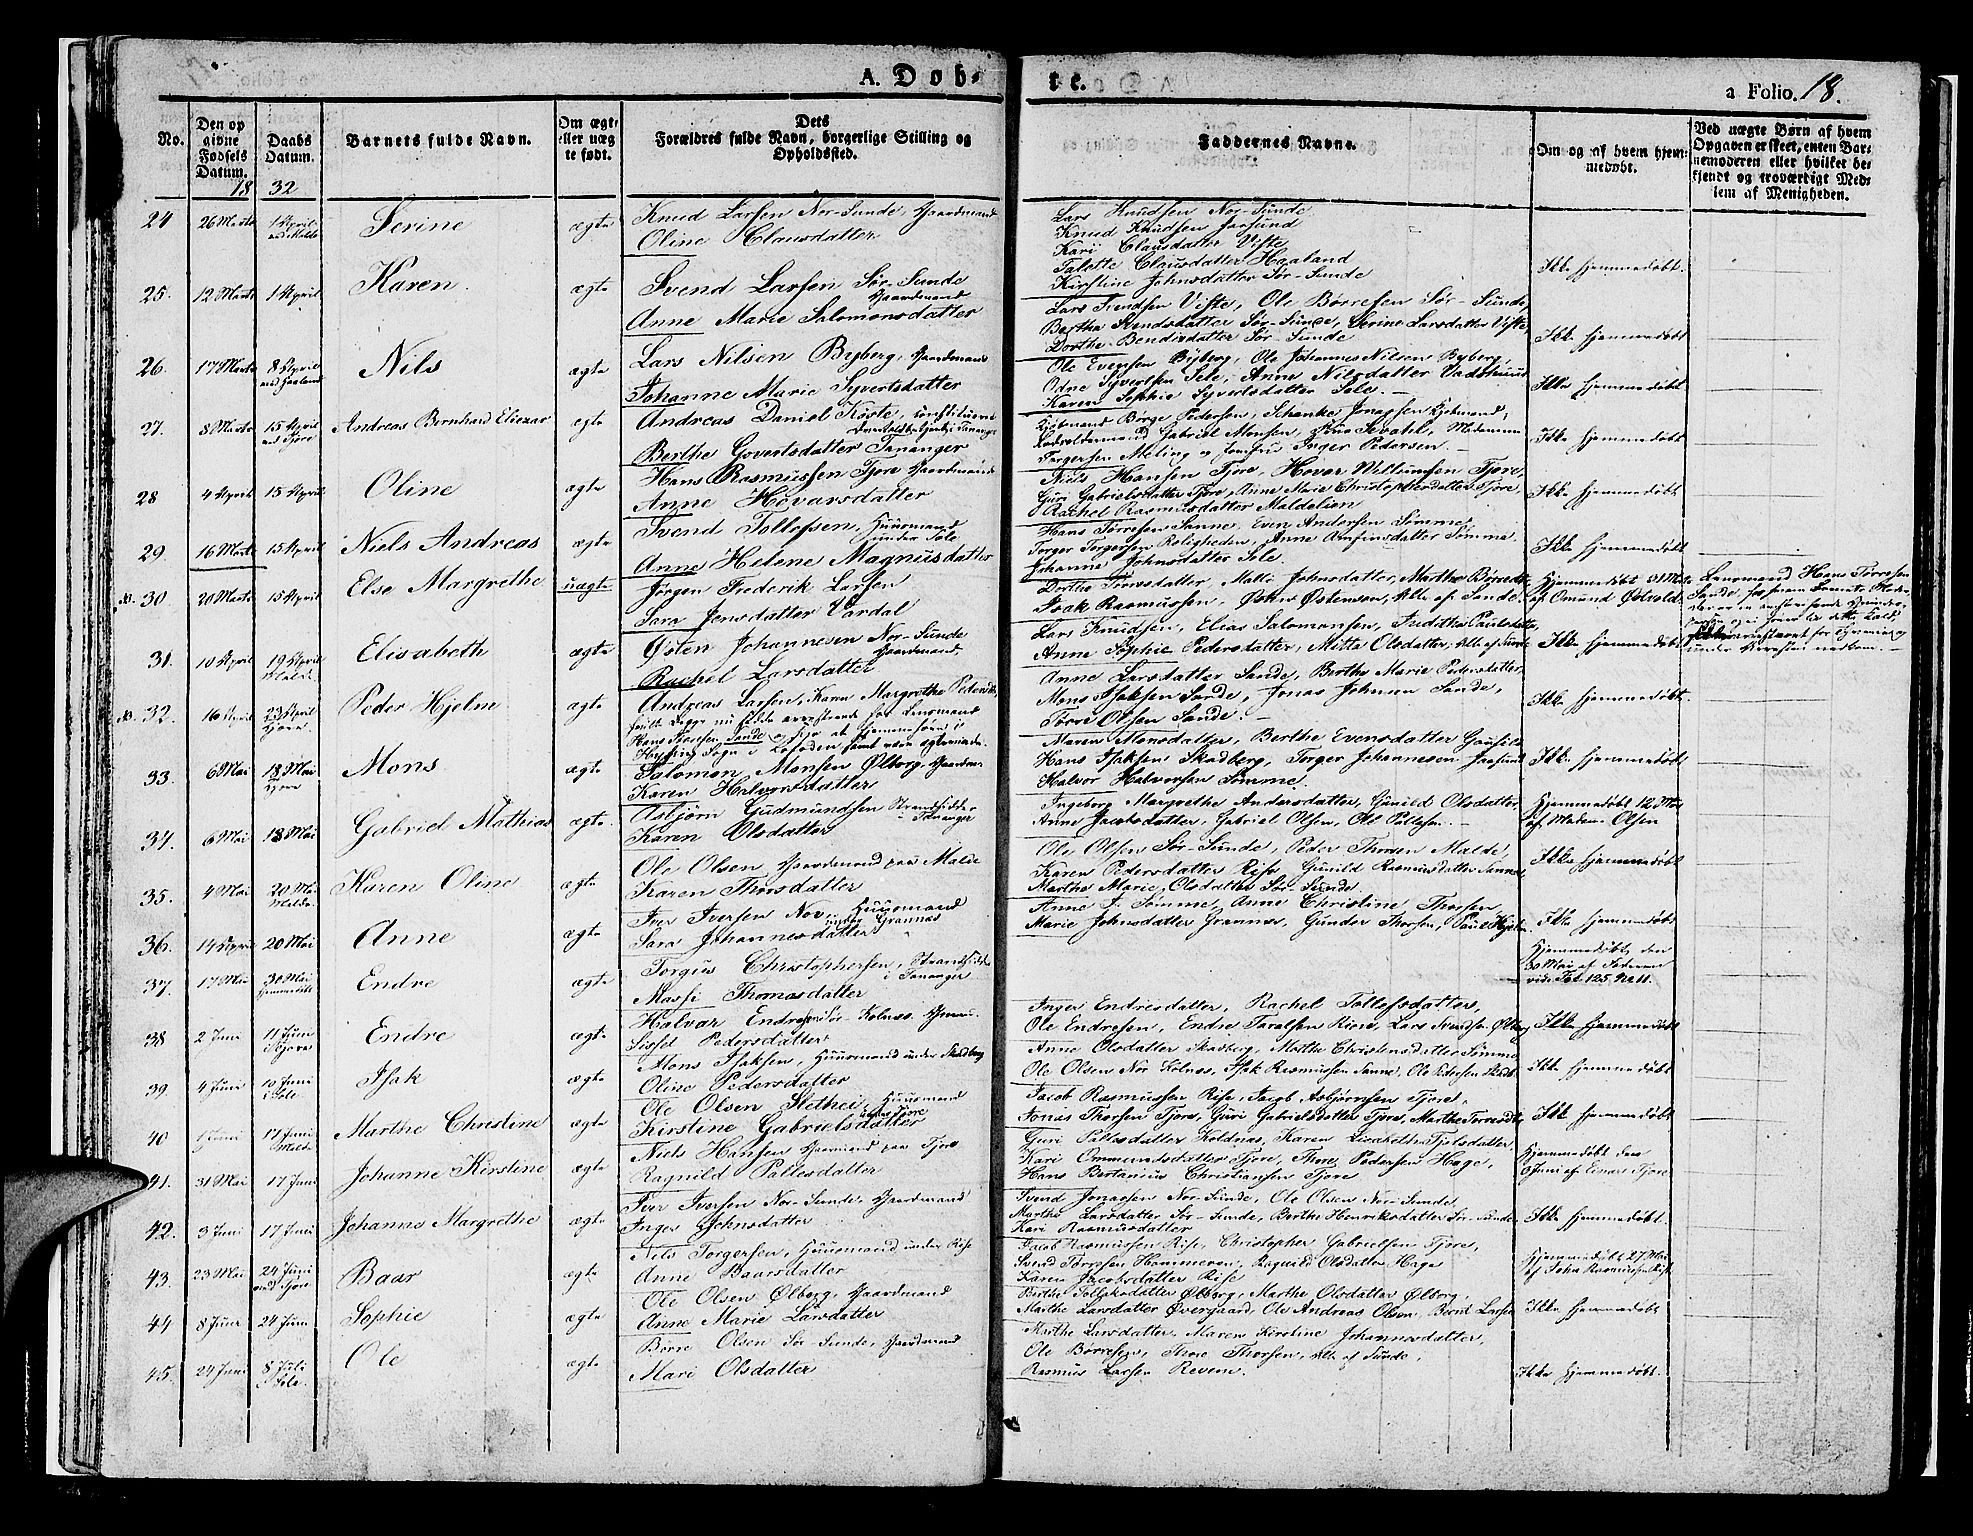 A. Døb-
te.
a Folio. 18.
No.
Den op
givne
Fødsels
Datum.
Daabs
Datum.
Barnets fulde Navn.
Om ægte
eller uæg
te født.
Dets
Forældres fulde Navn, borgerlige Stilling og
Opholdssted.
Faddernes Navne.
Om og af hvem hjem-
medøbt.
Ved uægte Børn af hvem
Opgaven er skeet, enten Bar-
nemoderen eller hvilket be-
kjendt og troværdigt Med-
lem af Menigheden.
18 32
24 26 Marts 1 April Serine ægte Knud Larsen Nor-Sunde, Gaardmand
Oline Clausdatter
Lars Knudsen Nor-Sunde
Knud Knudsen Joasund
Kari Clausdatter Viste
Talette Clausdatter Haaland
Kirstine Johnsdatter Sør-Sunde
Ikke hjemmedøbt.
25. 12 Marts 1 April Karen ægte Svend Larsen Sør-Sunde
Gaardmand
Anne Marie Salomonsdatter
Lars Svendsen Viste, Ole Børresen Sør-Sunde,
Berthe Svendsdatter Sør-Sunde, Serine Larsdatter Viste
Dorthe Bendixdatter Sør-Sunde
Ikke hjemmedøbt
26. 17 Marts 8 April Nils ægte Lars Nilsen Byberg, Gaardmand
Johanne Marie Syvertsdatter
Ole Evensen Byberg, Ole Johannes Nilsen Byberg,
Odne Syvertsen Sele, Anne Nilsdatter
Karen Sophie Syvertsdatter Sele.
Ikke hjemmedøbt
27. 8 Marts 15 April Andreas Bernhard Elienar ægte Andreas Daniel Køste, constitueret
Tananger
Berthe Govertsdatter Tananger
Kjøbmand Børge Pedersen, Schanke Jonassen Kjøbmand,
Gabriel Monsen, Madamme
Torgersen Meling og Jomfru Inger Pedersen.
Ikke hjemmedøbt
28 4 April 15 April Oline ægte Hans Rasmussen Tjore Gaardmand
Anne Hovarsdatter
Niels Hansen Tjore, Hovar Willumsen Tjore,
Guri Gabrielsdatter Tjore, Anne Marie Christophersdatter Tjore,
Rachel Rasmusdatter Maldelien
Ikke hjemmedøbt
29. 16 Marts 15 April Niels Andreas ægte Svend Tollefsen, Huusmand
under Sole
Anne Helene Magnusdatter
Hans Torresen Sanne, Even Andersen Sømme,
Torger Torgersen Roligheden, Anne Omfinsdatter Sømme
Johanne Johnsdatter Sele
Ikke hjemmedøbt
30 20 Marts 15 April Else Margrethe uægte Jørgen Frederik Larsen
Sara Jensdatter Vardal
Dorthe Torresdatter, Malli Johnsdatter, Marthe Børresdtr.
Isak Rasmussen, Østen Østensen, Alle af Sande.
Hjemmedøbt 31 Mts
af Omund Østvold
Lensmand Hans Torresen
Sande
31. 10 April 19 April Elisabeth ægte Østen Johannesen Nor-Sunde
Gaardmand,
Rachel Larsdatter
Lars Knudsen, Elias Salomonsen, Judithe Paulsdatter
Anne Sophie Pedersdatter, Mitta Olsdatter, Alle af Sunde
Ikke hjemmedøbt
32. 16 April 23 April Peder Hjelm ægte Andreas Larsen, Karen Margrethe Pedersdtr,
Hans Torresen Sande
Anne Larsdatter Sande, Berthe Marie Pedersdatter
Mons Isaksen Sande, Jonas Johnsen Sande,
Torri Olsen Sande.
Ikke hjemmedøbt
33. 6 Mai 13 Mai Mons ægte Salomon Monsen Ølborg, Gaardm.
Karen Halvorsdatter
Maren Monsdatter, Berthe Evensdatter
Hans Isaksen Skadberg, Torger Johannesen Joasund
Halvor Halvorsen Sømme.
Ikke hjemmedøbt
34. 6 Mai 13 Mai Gabriel Mathias ægte Asbjørn Gudmundsen Strandsidder
i Tananger
Karen Olsdatter
Ingeborg Margrethe Andersdatter, Gunild Olsdatter,
Anne Jacobsdatter, Gabriel Olsen, Ole Pallesen.
Hjemmedøbt 12 Mai
af Madam Olsen
35. 4 Mai 20 Mai Karen Oline ægte Ole Olsen Gaardmand paa Malde
Karen Thorsdatter
Ole Olsen Sør-Sunde, Peder Thorsen Malde,
Karen Pedersdatter Risse, Gunild Rasmusdatter Sanne
Marthe Marie Olsdatter Sør-Sunde.
Ikke hjemmedøbt
36. 14 April 20 Mai Anne ægte Iver Iversen Nor, Huusmand
under Grannes
Sara Johannesdatter
Anne J. Sømme, Anne Christine Thorsen
Marie Johnsdatter Grannes, Gunder Thorsen,
Ikke hjemmedøbt
37. 17 Mai 30 Mai Endre ægte Torgius Christophersen, Strandsidder
i Tananger
Massi Thomasdatter
Hjemmedøbt den
30 Mai af Faderen
vide Fol 125 Nr 11.
38 2 Juni 11 Juni Endre ægte Halvar Endresen Sør-Kolnæs, Gaardm.
Sissel Pedersdatter
Inger Endresdatter, Rachel Tollefsdatter,
Ole Endresen, Endre Taralsen Riene, Lars Svendsen Ølberg
Ikke hjemmedøbt
39. 4 Juni 10 Juni Isak ægte Mons Isaksen, Huusmand under Skadberg
Oline Pedersdatter
Anne Olsdatter Skadberg, Marthe Christensdatter Sømme
Ole Olsen Nor Kolnæs, Isak Rasmussen Sanne, Ole Pedersen
Ikke hjemmedøbt
40 Juni 17 Juni Marthe Christine ægte Ole Olsen Slethei, Huusmand
under Tjore
Kirstine Gabrielsdatter
Jacob Rasmussen Rise, Jacob Asbjørnsen Tjore,
Thorsen Tjore, Guri Gabrielsdatter Tjore, Marthe Torresdtr
Ikke hjemmedøbt
41. 31 Mai 17 Juni Johanne Kirstine ægte Niels Hansen Gaardmand paa Tjore
Ragnild Pallesdatter
Guri Pallesdatter Kolnæs, Karen
Kari Ommundsdatter Tjore, Thore Pedersen Hage,
Hans Bertinius Christiansen Tjore
Hjemmedøbt den
3 Juni af Einar Tjore
42. 3 Juni 17 Juni Johanne Margrethe ægte Iver Iversen Nor-Sunde, Gaardmand
Inger Johnsdatter
Svend Jonassen Nor-Sunde, Ole Olsen Nor-Sunde
Marthe Larsdatter Sør-Sunde, Berthe Henriksdatter Sør-Sunde
Kari Rasmusdatter
Ikke hjemmedøbt.
43. 23 Mai 24 Juni Baar ægte Nils Torgersen, Huusmand under Rise
Anne Baarsdatter
Jacob Rasmussen Rise, Christopher Gabrielsen Tjore,
Svend Torresen Hammeren, Ragnild Olsdatter Hage
Karen Jacobsdatter Rise
Hjemmedøbt 27 Mai
af John Rasmussen Rise
44 8 Juni 24 Juni Sophie ægte Ole Olsen Ølberg, Gaardmand
Anne Marie Larsdatter
Berthe Tollaksdatter Ølberg, Marthe Olsdatter Ølberg,
Marthe Larsdatter Øvergaard, Ole Andreas Olsen, Bernt Larsen
Ikke hjemmedøbt
45. 24 Juni 8 Juli Ole ægte Børre Olsen Sør-Sunde, Gaardmand
Mari Olsdatter
Marthe Larsdatter, Maren Kirstine Johannesdatter,
Ole Børresen, Thore Thorsen, Alle af Sunde,
Rasmus Larsen Revem.
Ikke hjemmedøbt.